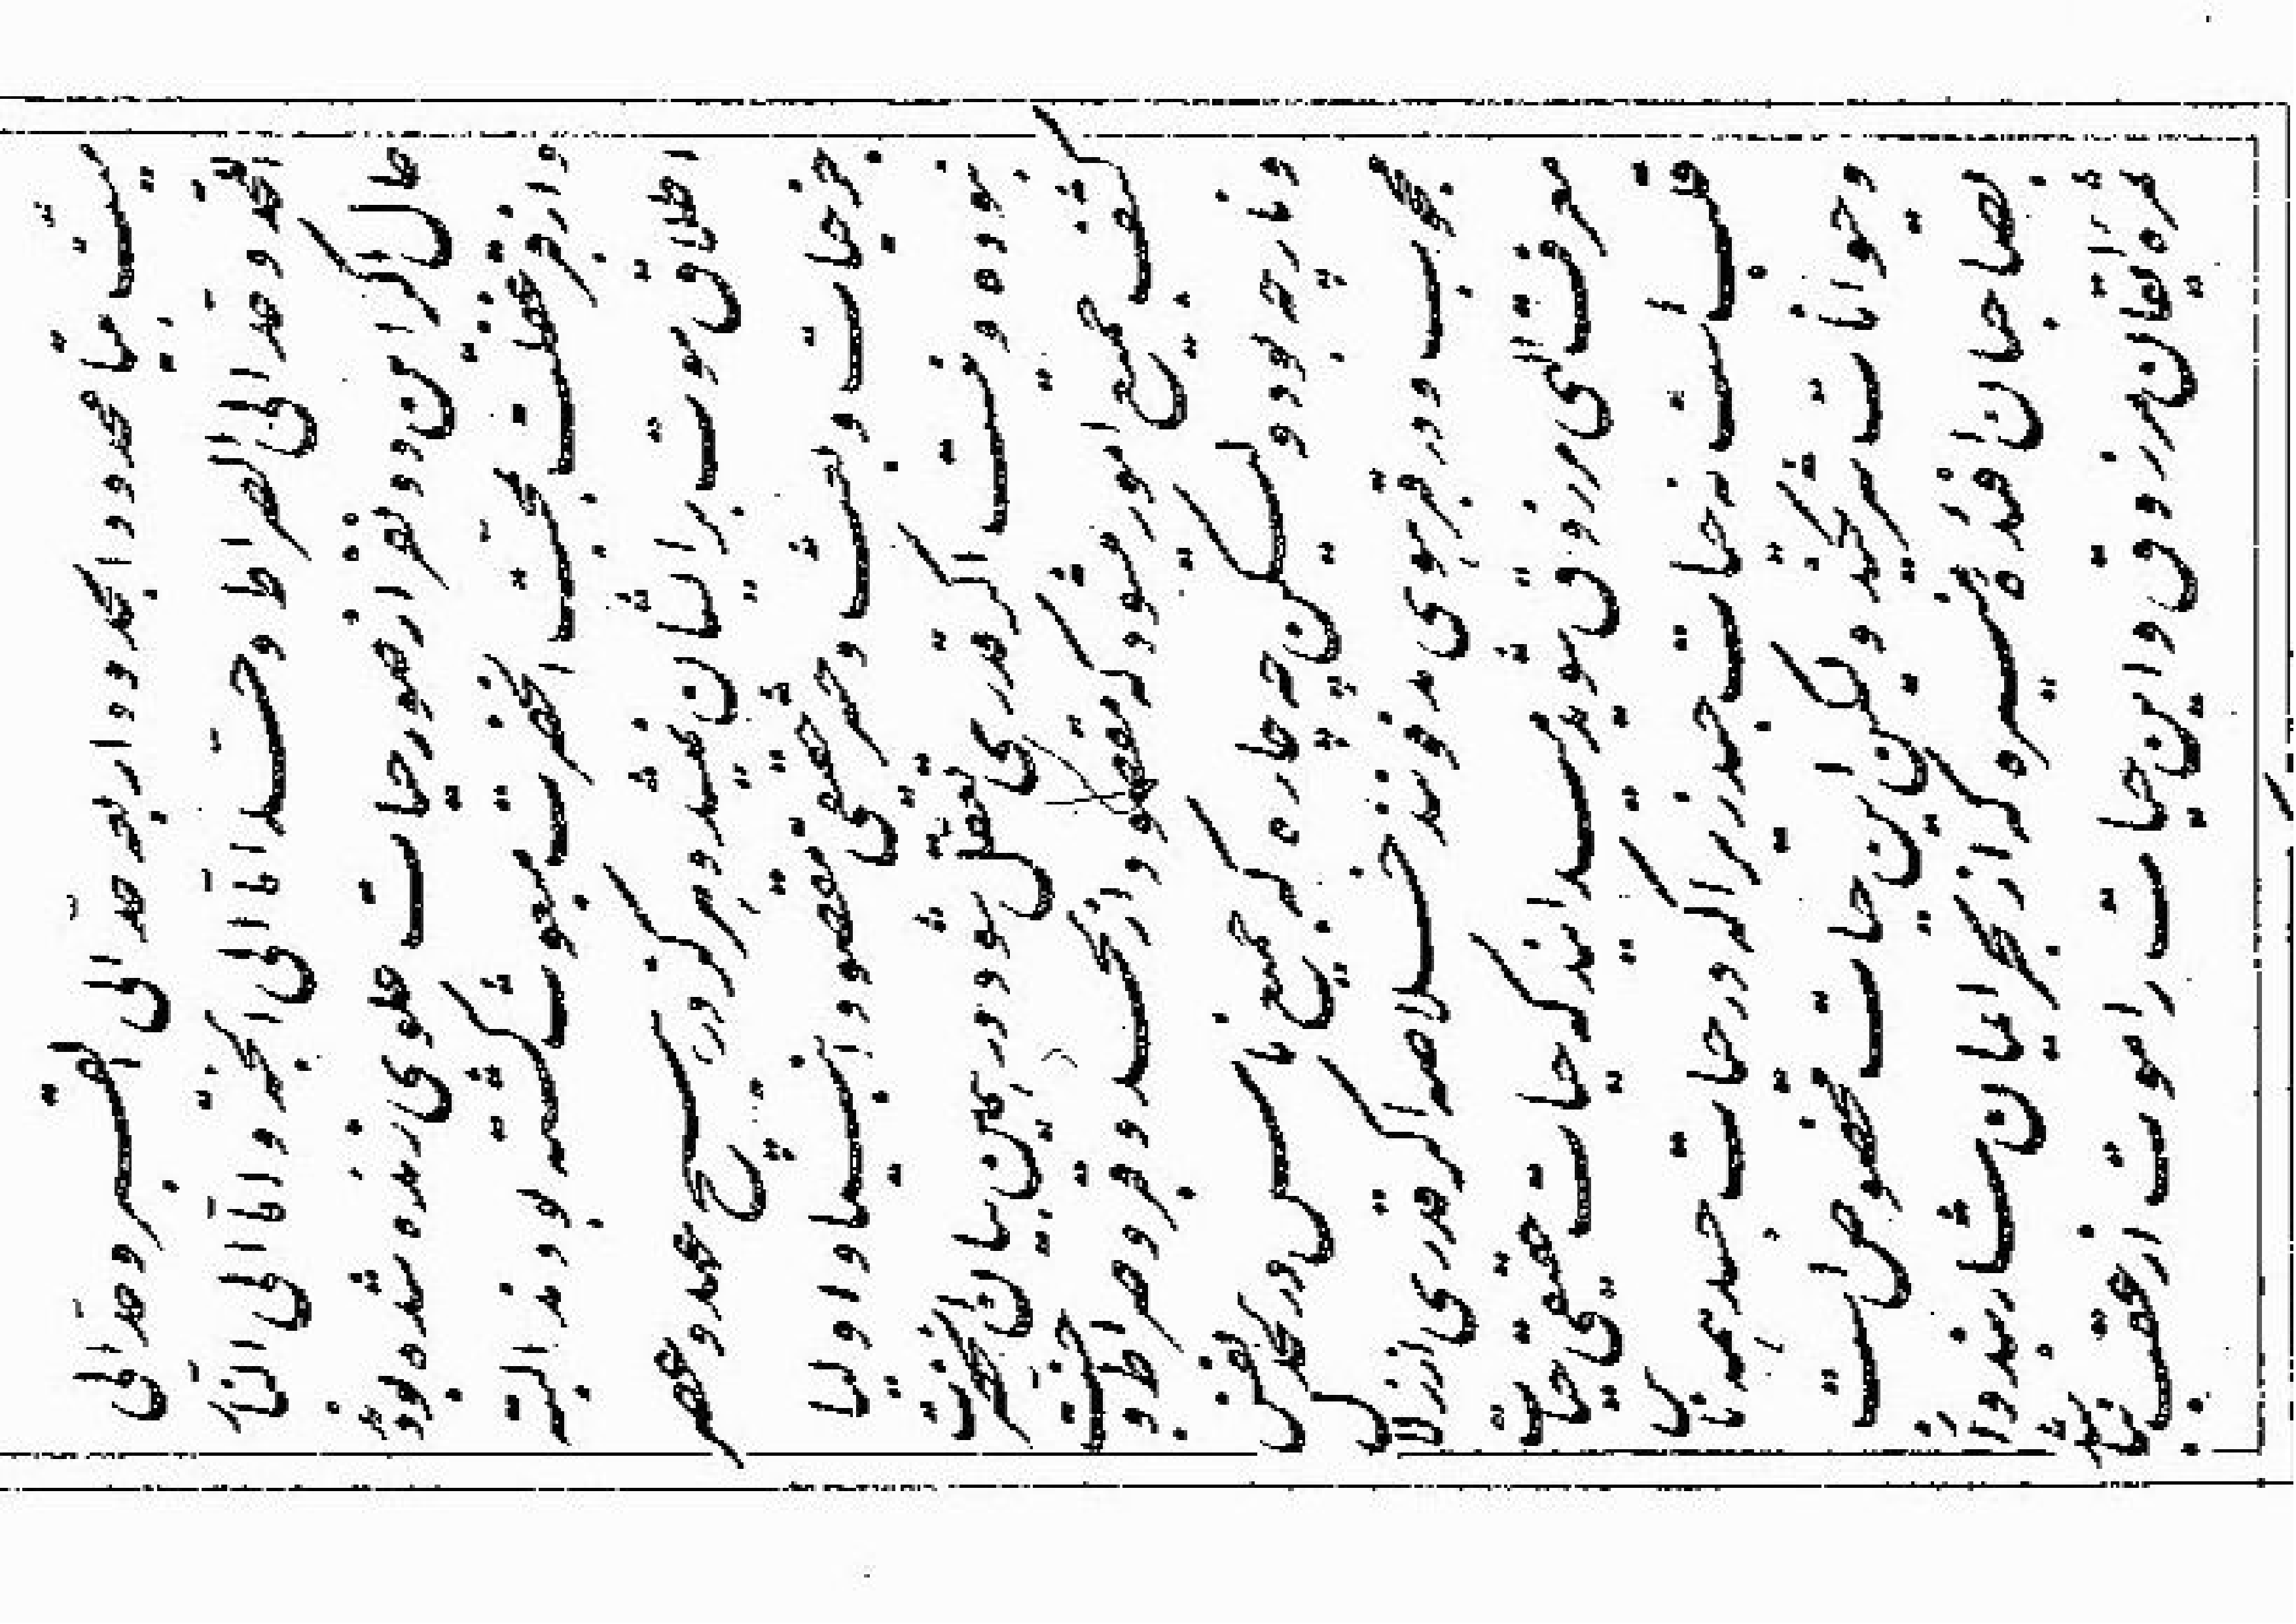 ميّت بيتاً محدوداً بحدود اربعة حدّ الی القبر و حدّ الی
اللّحد و حدّ الی الصّراط و حدّ امّا الی الجنّة و امّا الی النّار
حال اگر اين دو نفر از صور حيات علوی زنده شده بودند
و از قبر غفلت بمحبّت آنحضرت مبعوث گشته بودند البتّه
اطلاق موت بر ايشان نميشد و هرگز در هيچ عهد و عصر
جز حيات و بعث و حشر حقيقی مقصود انبيا و اوليا
نبوده و نيست اگر قدری تعقّل شود در همين بيان آنحضرت
کشف جميع امور ميشود که مقصود از لحد و قبر و صراط و جنّت
و نار چه بوده و لکن چه چاره که جميع ناس در لحد نفس
محجوب و در قبر هوی مدفونند خلاصه اگر قدری از زلال
معرفت الهی مرزوق شويد ميدانيد که حيات حقيقی حيات
قلب است نه حيات جسد زيرا که در حيات جسد همه ناس
و حيوانات شريکند ولکن اين حيات مخصوص است
بصاحبان افئدهٔ منيره که از بحر ايمان شاربند و از
ثمرهٔ ايقان مرزوق و اين حيات را موت از عقب نباشد